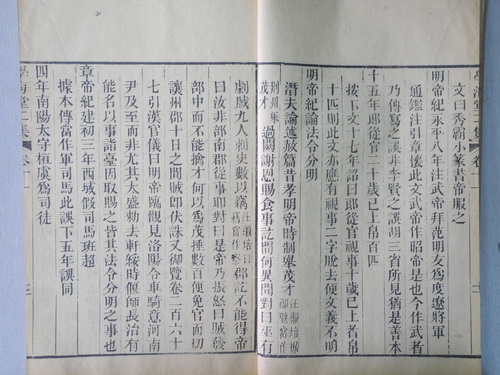 文曰秀霸小篆書帝服之
明帝紀永平八年注武帝拜范明友為度遼將軍
通鑑注引章懷此文武帝作昭帝是也今作武者
乃傳寫之誤非李賢之誤胡三省所見猶是善本
十五年郎從官二十歲已上帛百匹
按下文十七年詔曰郎從官視事十歲已上者帛
十匹則此文亦應有視事二字脫去便文義不明
明帝紀論法令分明
潛夫論述赦篇昔孝明帝時制舉茂才汪繼培據御覽當作
荊州舉茂才過闕謝恩賜食事訖問何異聞對曰巫有
劇賊九人刺史數以竊郡訖不能得帝
曰汝非部南郡從事邪對曰是帝乃振怒曰賊發
部中而不能擒才何以為茂捶數百便免官而切
讓州郡十日之間賊即伏誅又御覽卷二百六十
七引漢官儀曰明帝臨觀見洛陽令車騎意河南
尹及至而非尤其太盛勑去軒綏時偃師長治有
能名以事詣臺因取賜之皆其法令分明之事也
章帝紀建初三年西域假司馬班超
據本傳當作軍司馬此誤下五年誤同
四年南陽太守桓虞為司徒
學海堂二集
三